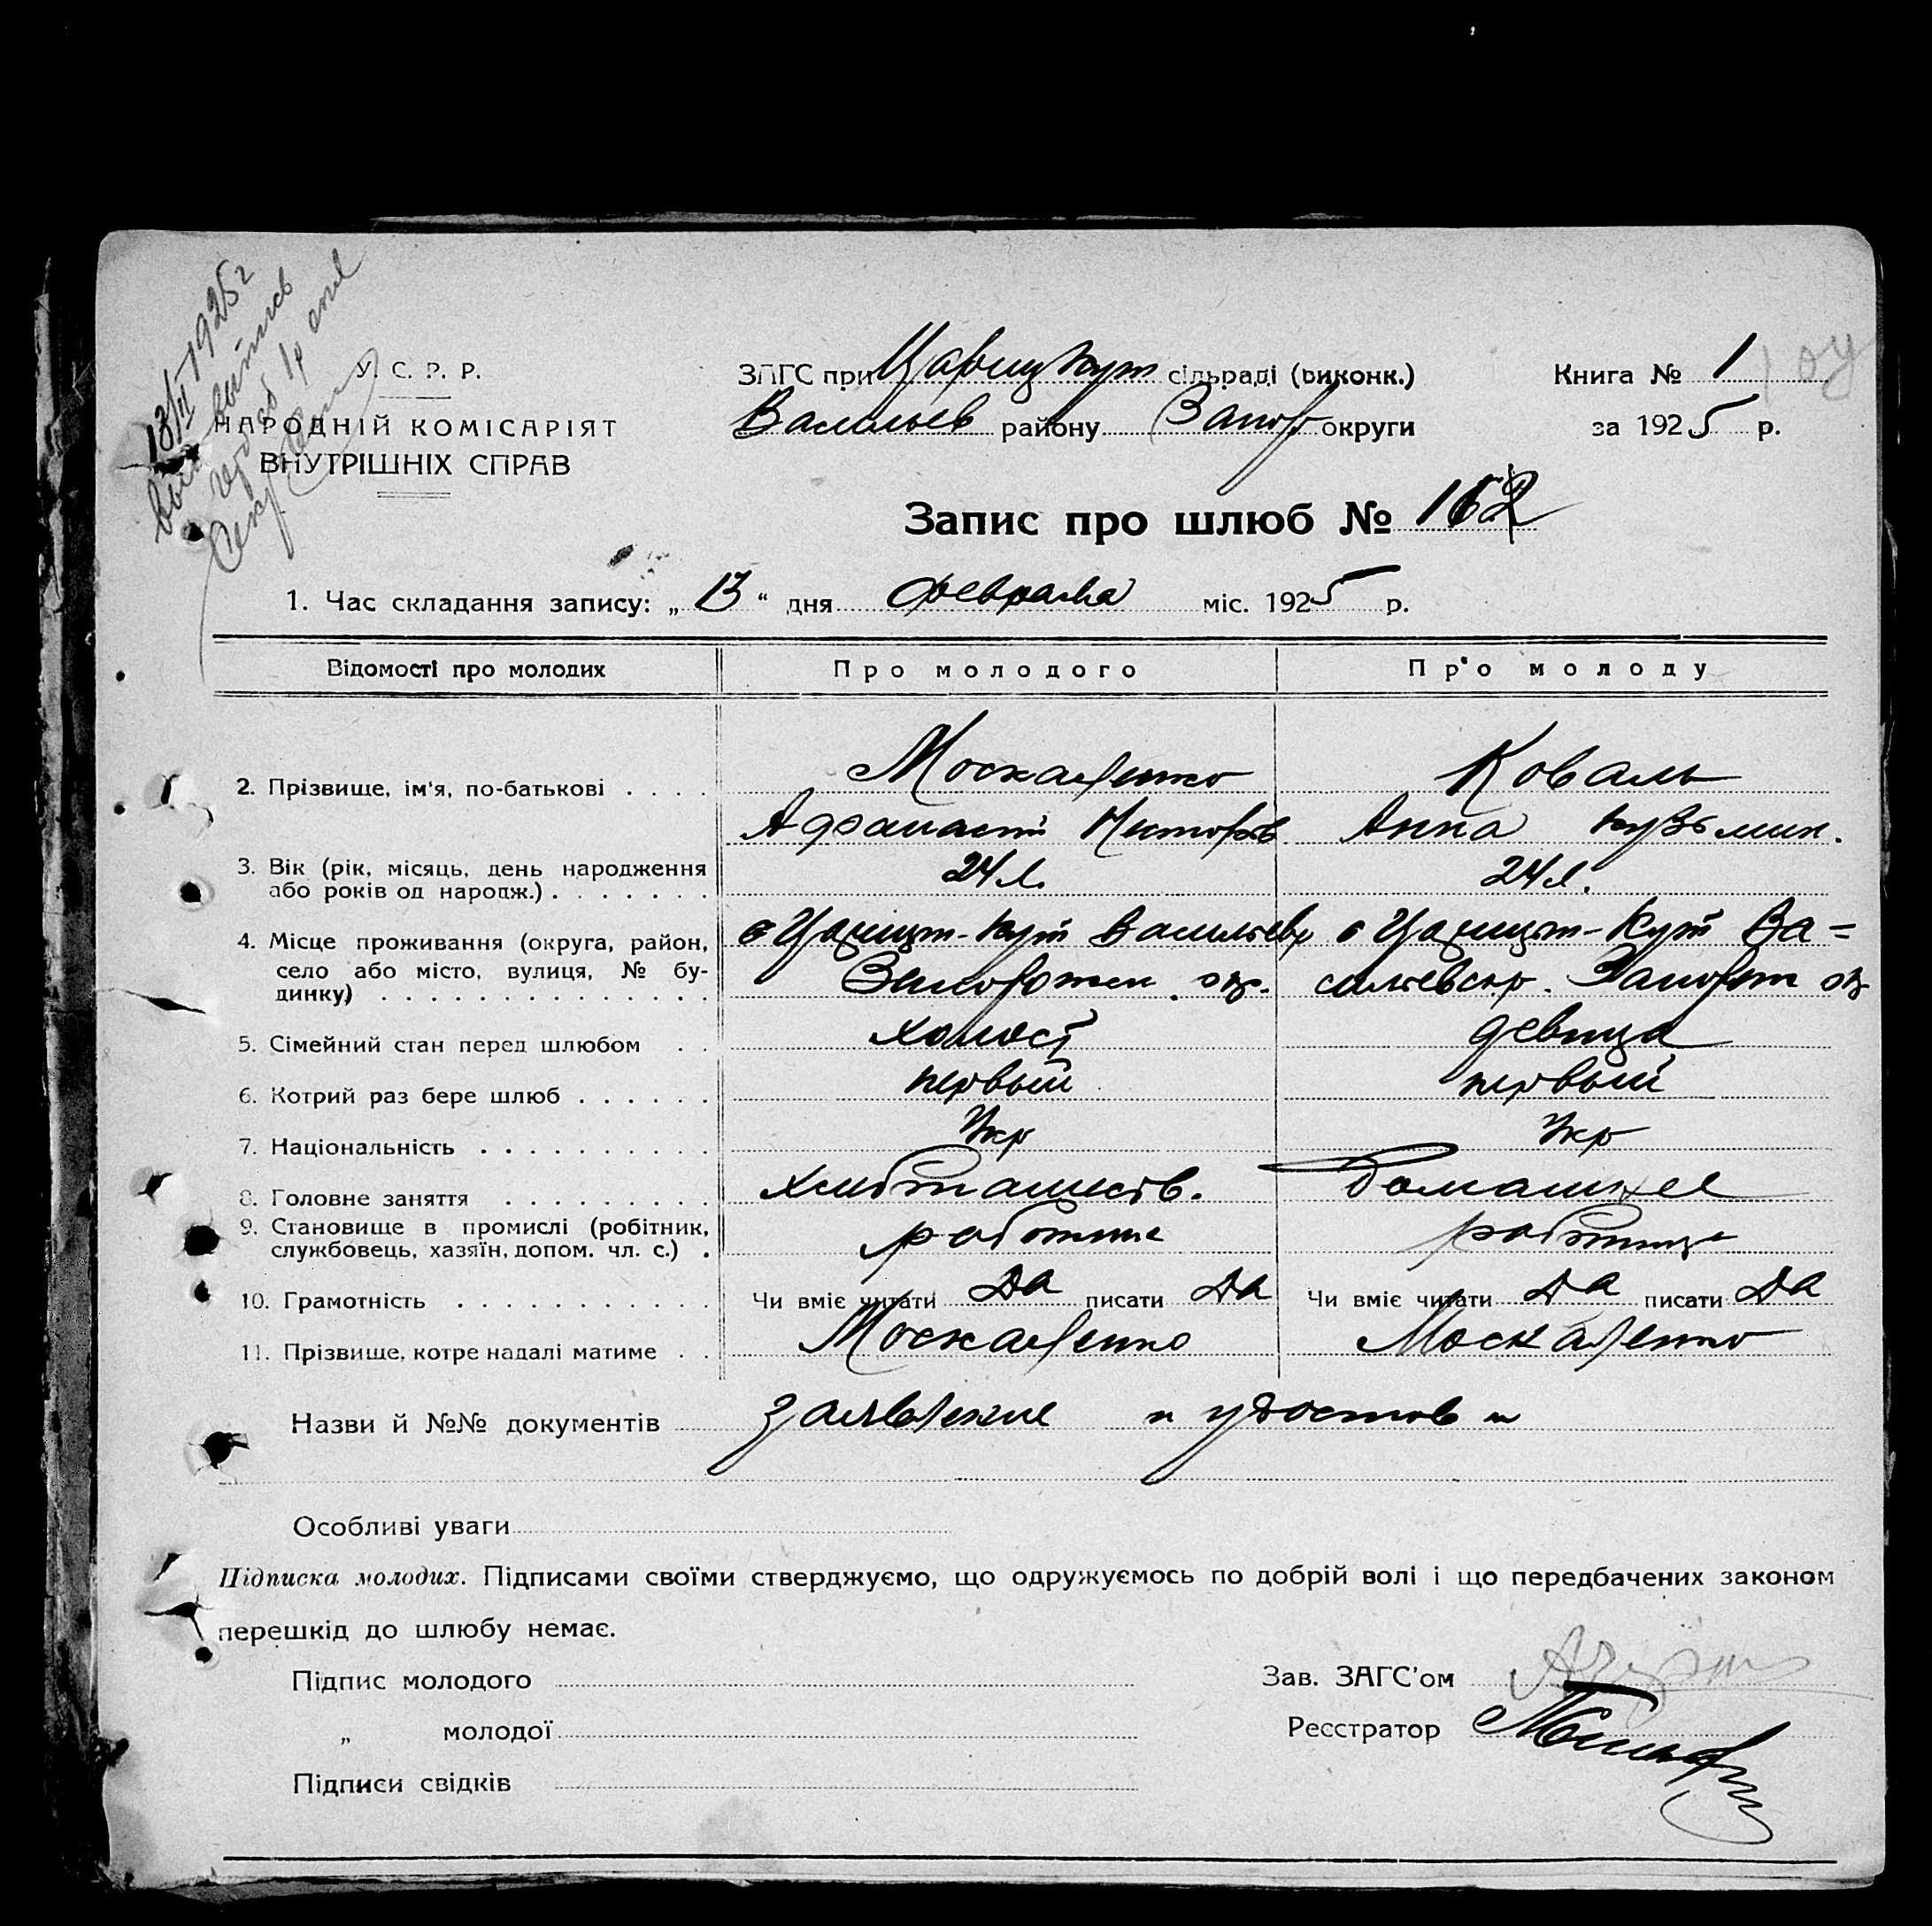 13/II 1925 г
У. С. Р. Р.
НАРОДНІЙ КОМІСАРІЯТ
ВНУТРІШНІХ СПРАВ
ЗАГС при Царицкут сільраді (виконк.)
Васильев району Запор округи
Книга № 1
за 1925 р.
Запис про шлюб № 162
1. Час складання запису: „ 13 “ дня февраля міс. 1925 р.
Відомості про молодих Про молодого Про молоду
2. Прізвище, ім'я, по-батькові . . . . Москаленко Коваль
Афанасий Несторов Анна Кузьмин.
3. Вік (рік, місяць, день народження 24 л. 24 л.
або років од народж.) . . . . . . .
4. Місце проживання (округа, район, с Царицын-Кут Васильевс с Царицын-Кут Ва=
село або місто, вулиця, № бу- Запорожск. окр. сильевскр. Запорож окр
динку) . . . . . . . . . . . . . .
5. Сімейний стан перед шлюбом . . холост девица
6. Котрий раз бере шлюб . . . . . . первый первый
7. Національність . . . . . . . . . . Укр Укр
8. Головне заняття . . . . . . . . . хлебопашеств. домашнее
9. Становище в промислі (робітник,
службовець, хазяїн, допом. чл. с.) .
10. Грамотність . . . . . . . . . . . Чи вміє читати Да писати Да Чи вміє читати Да писати Да
11. Прізвище, котре надалі матиме . . Москаленко Москаленко
Назви й №№ документів заявление и удостов
Особливі уваги
Підписка молодих. Підписами своїми стверджуємо, що одружуємось по добрій волі і що передбачених законом
перешкід до шлюбу немає.
Підпис молодого
Зав. ЗАГС'ом
„ молодої
Реєстратор
Підписи свідків